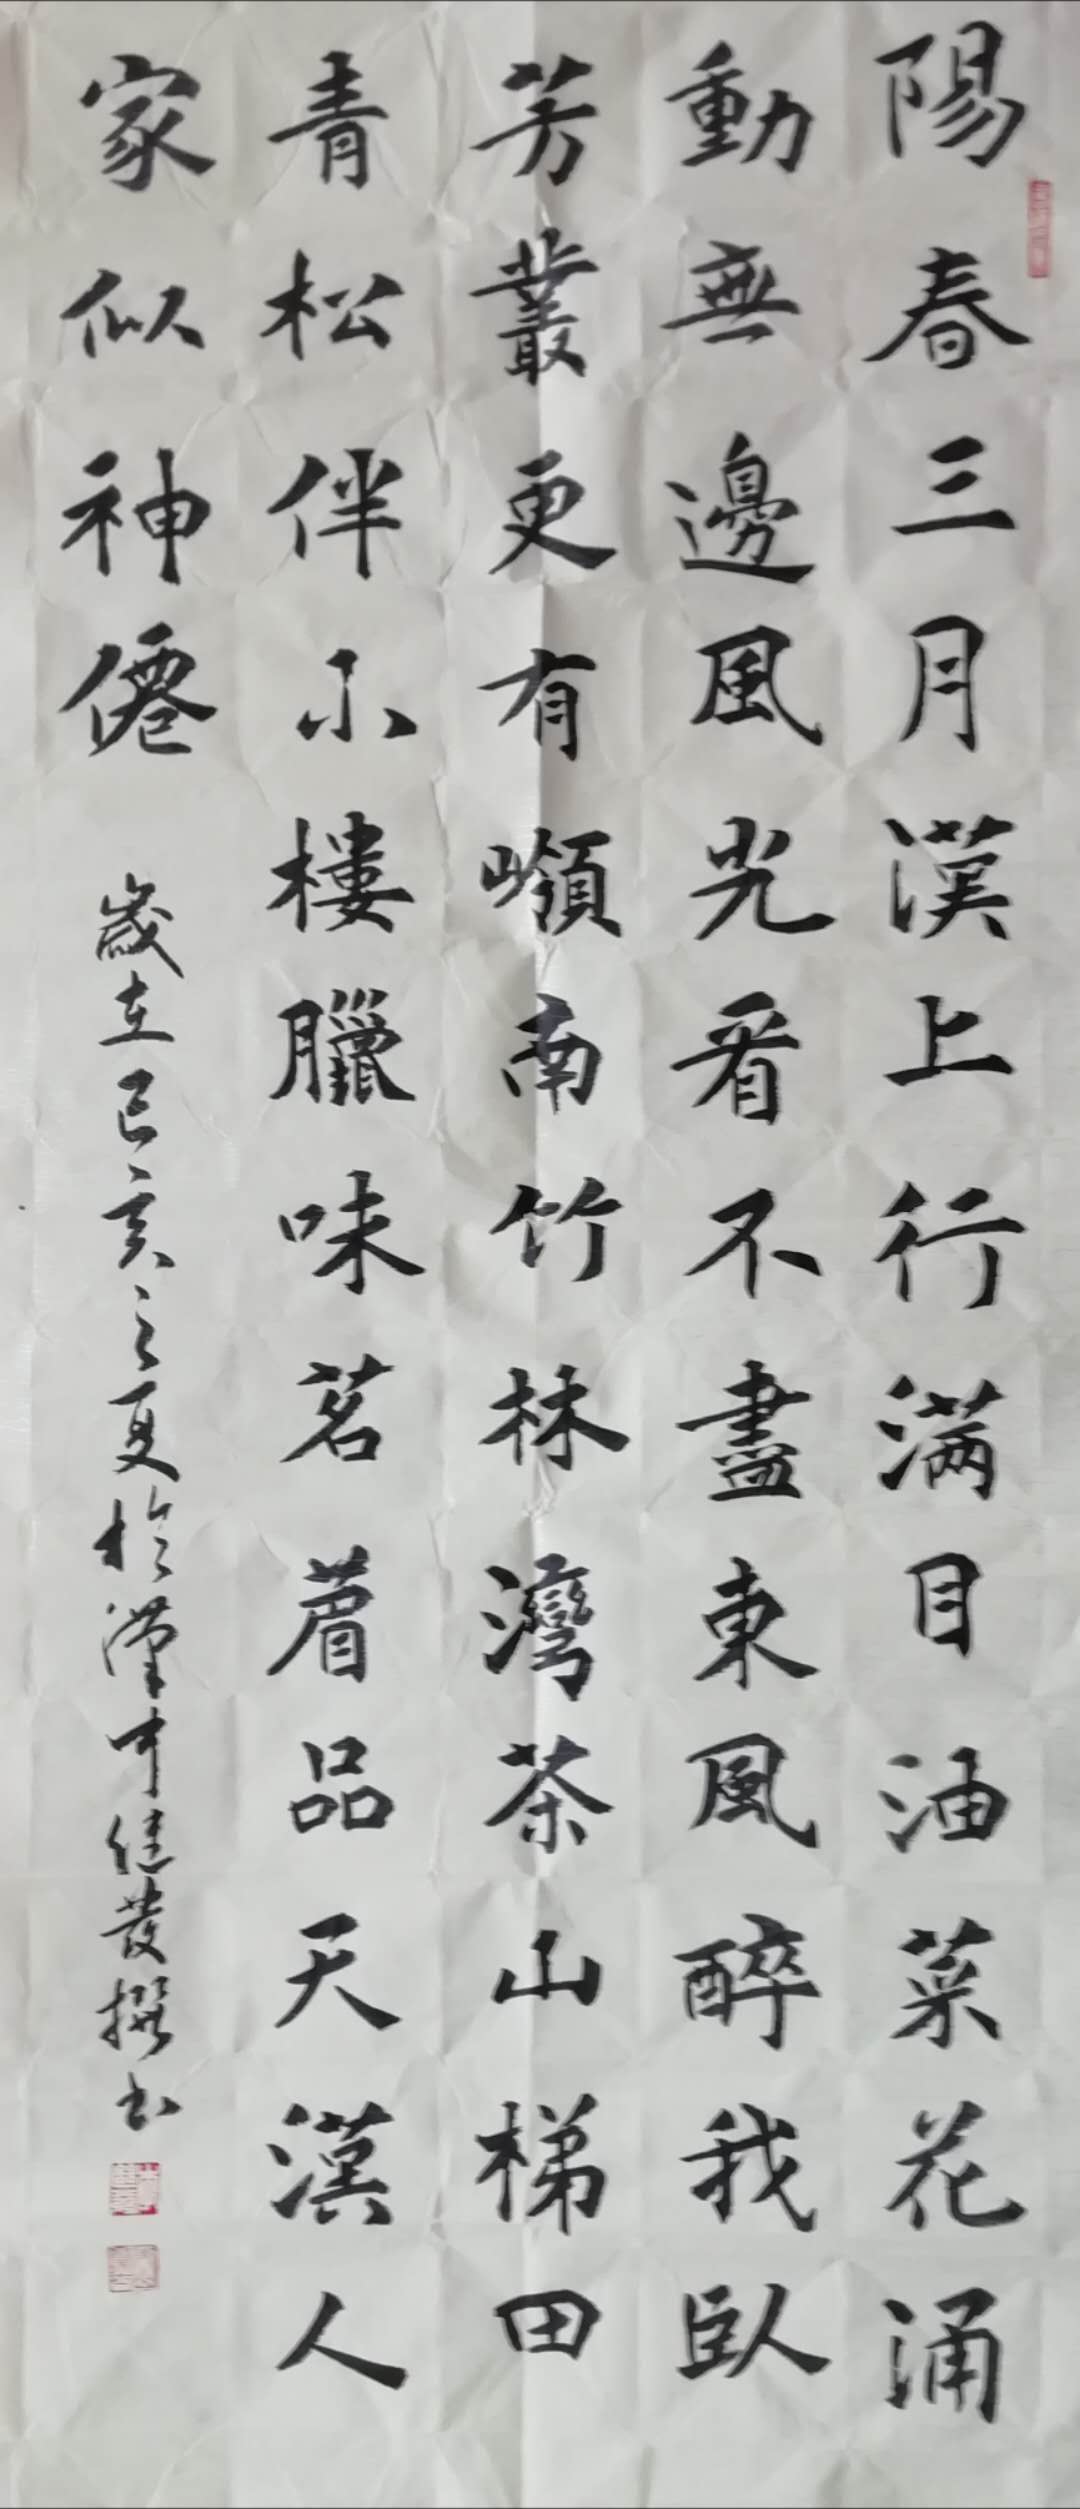 陽春三月漢上行滿目油菜花涌
動無邊風光看不盡東風醉我臥
芳叢更有嶺南竹林灣茶山梯田
青松伴小樓臘味茗着品天漢人
家似神僊
歲在己亥之夏於漢中佳發撰書